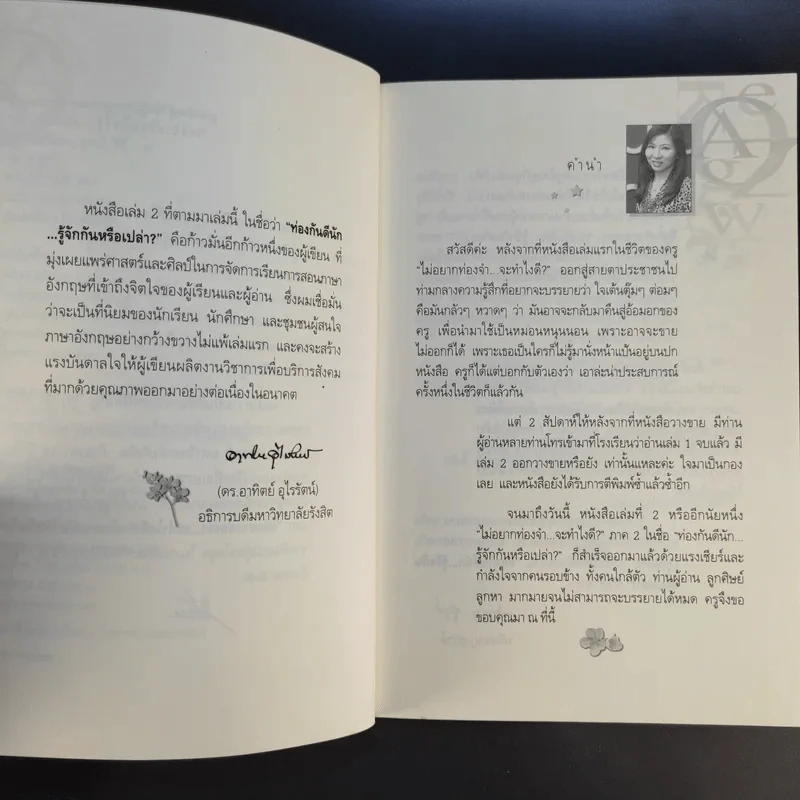 หนังสือเล่ม 2 ที่ตามมาเล่มนี้ ในชื่อว่า "ท่องกันดีนัก
...รู้จักกันหรือเปล่า?" คือก้าวมั่นอีกก้าวหนึ่งของผู้เขียน ที่
มุ่งเผยแพร่ศาสตร์และศิลป์ในการจัดการเรียนการสอนภาษา
อังกฤษที่เข้าถึงจิตใจของผู้เรียนและผู้อ่าน ซึ่งผมเชื่อมั่น
ว่าจะเป็นที่นิยมของนักเรียน นักศึกษา และชุมชนผู้สนใจ
ภาษาอังกฤษอย่างกว้างขวางไม่แพ้เล่มแรก และคงจะสร้าง
แรงบันดาลใจให้ผู้เขียนผลิตงานวิชาการเพื่อบริการสังคม
ที่มากด้วยคุณภาพออกมาอย่างต่อเนื่องในอนาคต
(ดร.อาทิตย์ อุไรรัตน์)
อธิการบดีมหาวิทยาลัยรังสิต
คำนำ
สวัสดีค่ะ หลังจากที่หนังสือเล่มแรกในชีวิตของครู
"ไม่อยากท่องจำ...จะทำไงดี?" ออกสู่สายตาประชาชนไป
ท่ามกลางความรู้สึกที่อยากจะบรรยายว่า ใจเต้นตุ๊มๆ ต่อมๆ
คือมันกลัวๆ หวาดๆ ว่า มันอาจจะกลับมาคืนสู่อ้อมอกของ
ครู เพื่อนำมาใช้เป็นหมอนหนุนนอน เพราะอาจจะขาย
ไม่ออกก็ได้ เพราะเธอเป็นใครก็ไม่รู้มานั่งหน้าแป้นอยู่บนปก
หนังสือ ครูก็ได้แต่บอกกับตัวเองว่า เอาล่ะน่าประสบการณ์
ครั้งหนึ่งในชีวิตก็แล้วกัน
แต่ 2 สัปดาห์ให้หลังจากที่หนังสือวางขาย มีท่าน
ผู้อ่านหลายท่านโทรเข้ามาที่โรงเรียนว่าอ่านเล่ม 1 จบแล้ว มี
เล่ม 2 ออกวางขายหรือยัง เท่านั้นแหละค่ะ ใจมาเป็นกอง
เลย และหนังสือยังได้รับการตีพิมพ์ซ้ำแล้วซ้ำอีก
จนมาถึงวันนี้ หนังสือเล่มที่ 2 หรืออีกนัยหนึ่ง
"ไม่อยากท่องจำ...จะทำไงดี?" ภาค 2 ในชื่อ "ท่องกันดีนัก...
รู้จักกันหรือเปล่า?" ก็สำเร็จออกมาแล้วด้วยแรงเชียร์และ
กำลังใจจากคนรอบข้าง ทั้งคนใกล้ตัว ท่านผู้อ่าน ลูกศิษย์
ลูกหา มากมายจนไม่สามารถจะบรรยายได้หมด ครูจึงขอ
ขอบคุณมา ณ ที่นี้